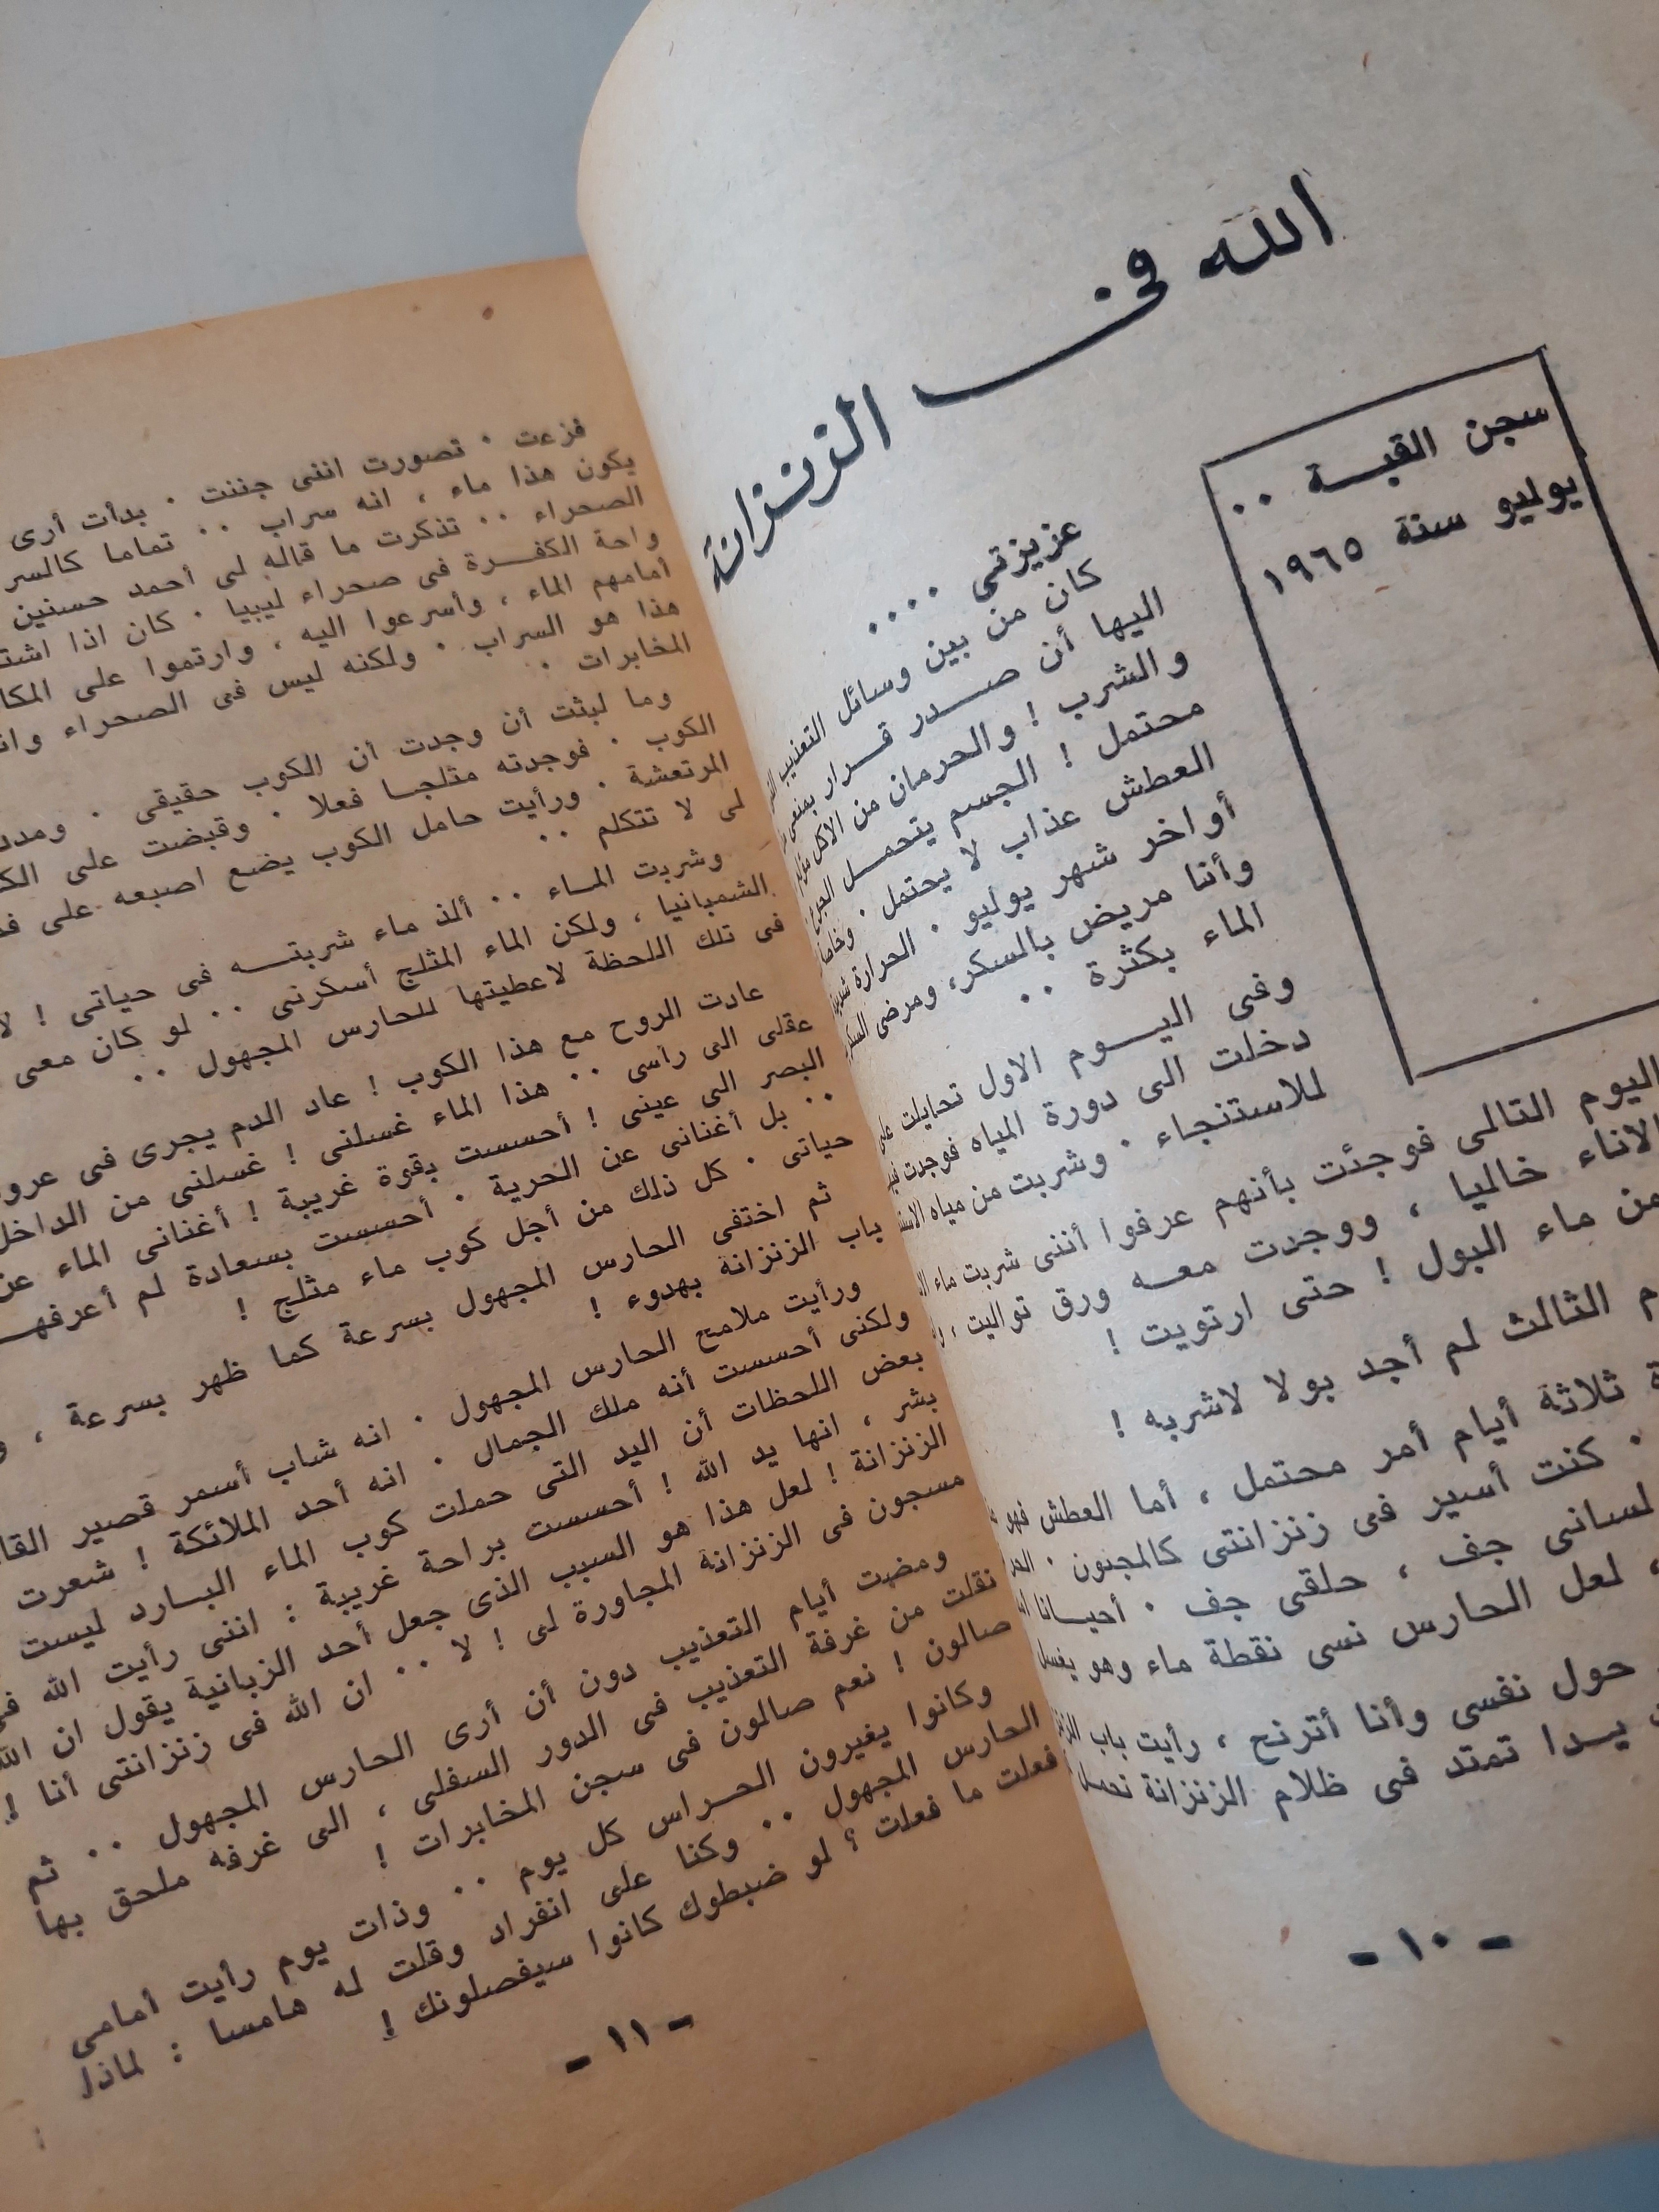 الله فى الزنزانة
سجن القبــة ..
يوليو سنة ١٩٦٥
عزيزتى ....
كان من بين وسائل التعذيب
اليها أن صــدر قــرار بمنعى
والشرب ! والحرمان من الاكل
محتمل ! الجسم يتحمــل الجوع
العطش عذاب لا يحتمل . وخاصة
أواخر شهر يوليو . الحرارة شديدة
وأنا مريض بالسكر، ومرضى السكر
الماء بكثرة ..
وفى اليــوم الاول تحايلت على
دخلت الى دورة المياه فوجدت
للاستنجاء . وشربت من مياه
اليوم التالى فوجئت بأنهم عرفوا أننى شربت ماء
الاناء خاليا ، ووجدت معــه ورق تواليت ،
من ماء البول ! حتى ارتويت !
الثالث لم أجد بولا لاشربه !
ثلاثة أيام أمر محتمل ، أما العطش فهو
. كنت أسير فى زنزانتى كالمجنون .
لسانى جف ، حلقى جف . أحيــانا
، لعل الحارس نسى نقطة ماء وهو يغسل
حول نفسى وأنا أترنح ، رأيت باب
يــدا تمتد فى ظلام الزنزانة تحمــل
- ١٠ -
فزعت . تصورت اننى جننت . بدأت أرى
يكون هذا ماء ، انه سراب .. تماما
الصحراء .. تذكرت ما قاله لى أحمد حسنين
واحة الكفــرة فى صحراء ليبيا . كان اذا
أمامهم الماء ، وأسرعوا اليه ، وارتموا على
هذا هو السراب . ولكنه ليس فى الصحراء
المخابرات .
وما لبثت أن وجدت أن الكوب حقيقى .
الكوب . فوجدته مثلجــا فعلا . وقبضت على
المرتعشة . ورأيت حامل الكوب يضع اصبعه على
لى لا تتكلم ..
وشربت المــاء .. ألذ ماء شربتــه فى حياتى !
الشمبانيا ، ولكن الماء المثلج أسكرنى .. لو كان معى
فى تلك اللحظة لاعطيتها للحارس المجهول ..
عادت الروح مع هذا الكوب ! عاد الدم يجرى فى
عقلى الى رأسى .. هذا الماء غسلنى ! غسلنى من الداخل
البصر الى عينى ! أحسست بقوة غريبة ! أغنانى الماء عن
.. بل أغنانى عن الحرية . أحسست بسعادة لم أعرفهــا
حياتى . كل ذلك من أجل كوب ماء مثلج !
ثم اختفى الحارس المجهول بسرعة كما ظهر بسرعة ،
باب الزنزانة بهدوء !
ورأيت ملامح الحارس المجهول . انه شاب أسمر قصير
ولكنى أحسست أنه ملك الجمال . انه أحد الملائكة ! شعرت
بعض اللحظات أن اليد التى حملت كوب الماء البــارد ليست
بشر ، انها يد الله ! أحسست براحة غريبة : اننى رأيت الله فى
الزنزانة ! لعل هذا هو السبب الذى جعل أحد الزبانية يقول ان الله
مسجون فى الزنزانة المجاورة لى ! لا .. ان الله فى زنزانتى أنا !
ومضت أيام التعذيب دون أن أرى الحارس المجهول .. ثم
نقلت من غرفة التعذيب فى الدور السفلى ، الى غرفه ملحق بها
صالون ! نعم صالون فى سجن المخابرات !
وكانوا يغيرون الحــراس كل يوم .. وذات يوم رأيت امامى
الحارس المجهول .. وكنا على انفراد وقلت له هامسا : لماذا
فعلت ما فعلت ؟ لو ضبطوك كانوا سيفصلونك !
- ١١ -